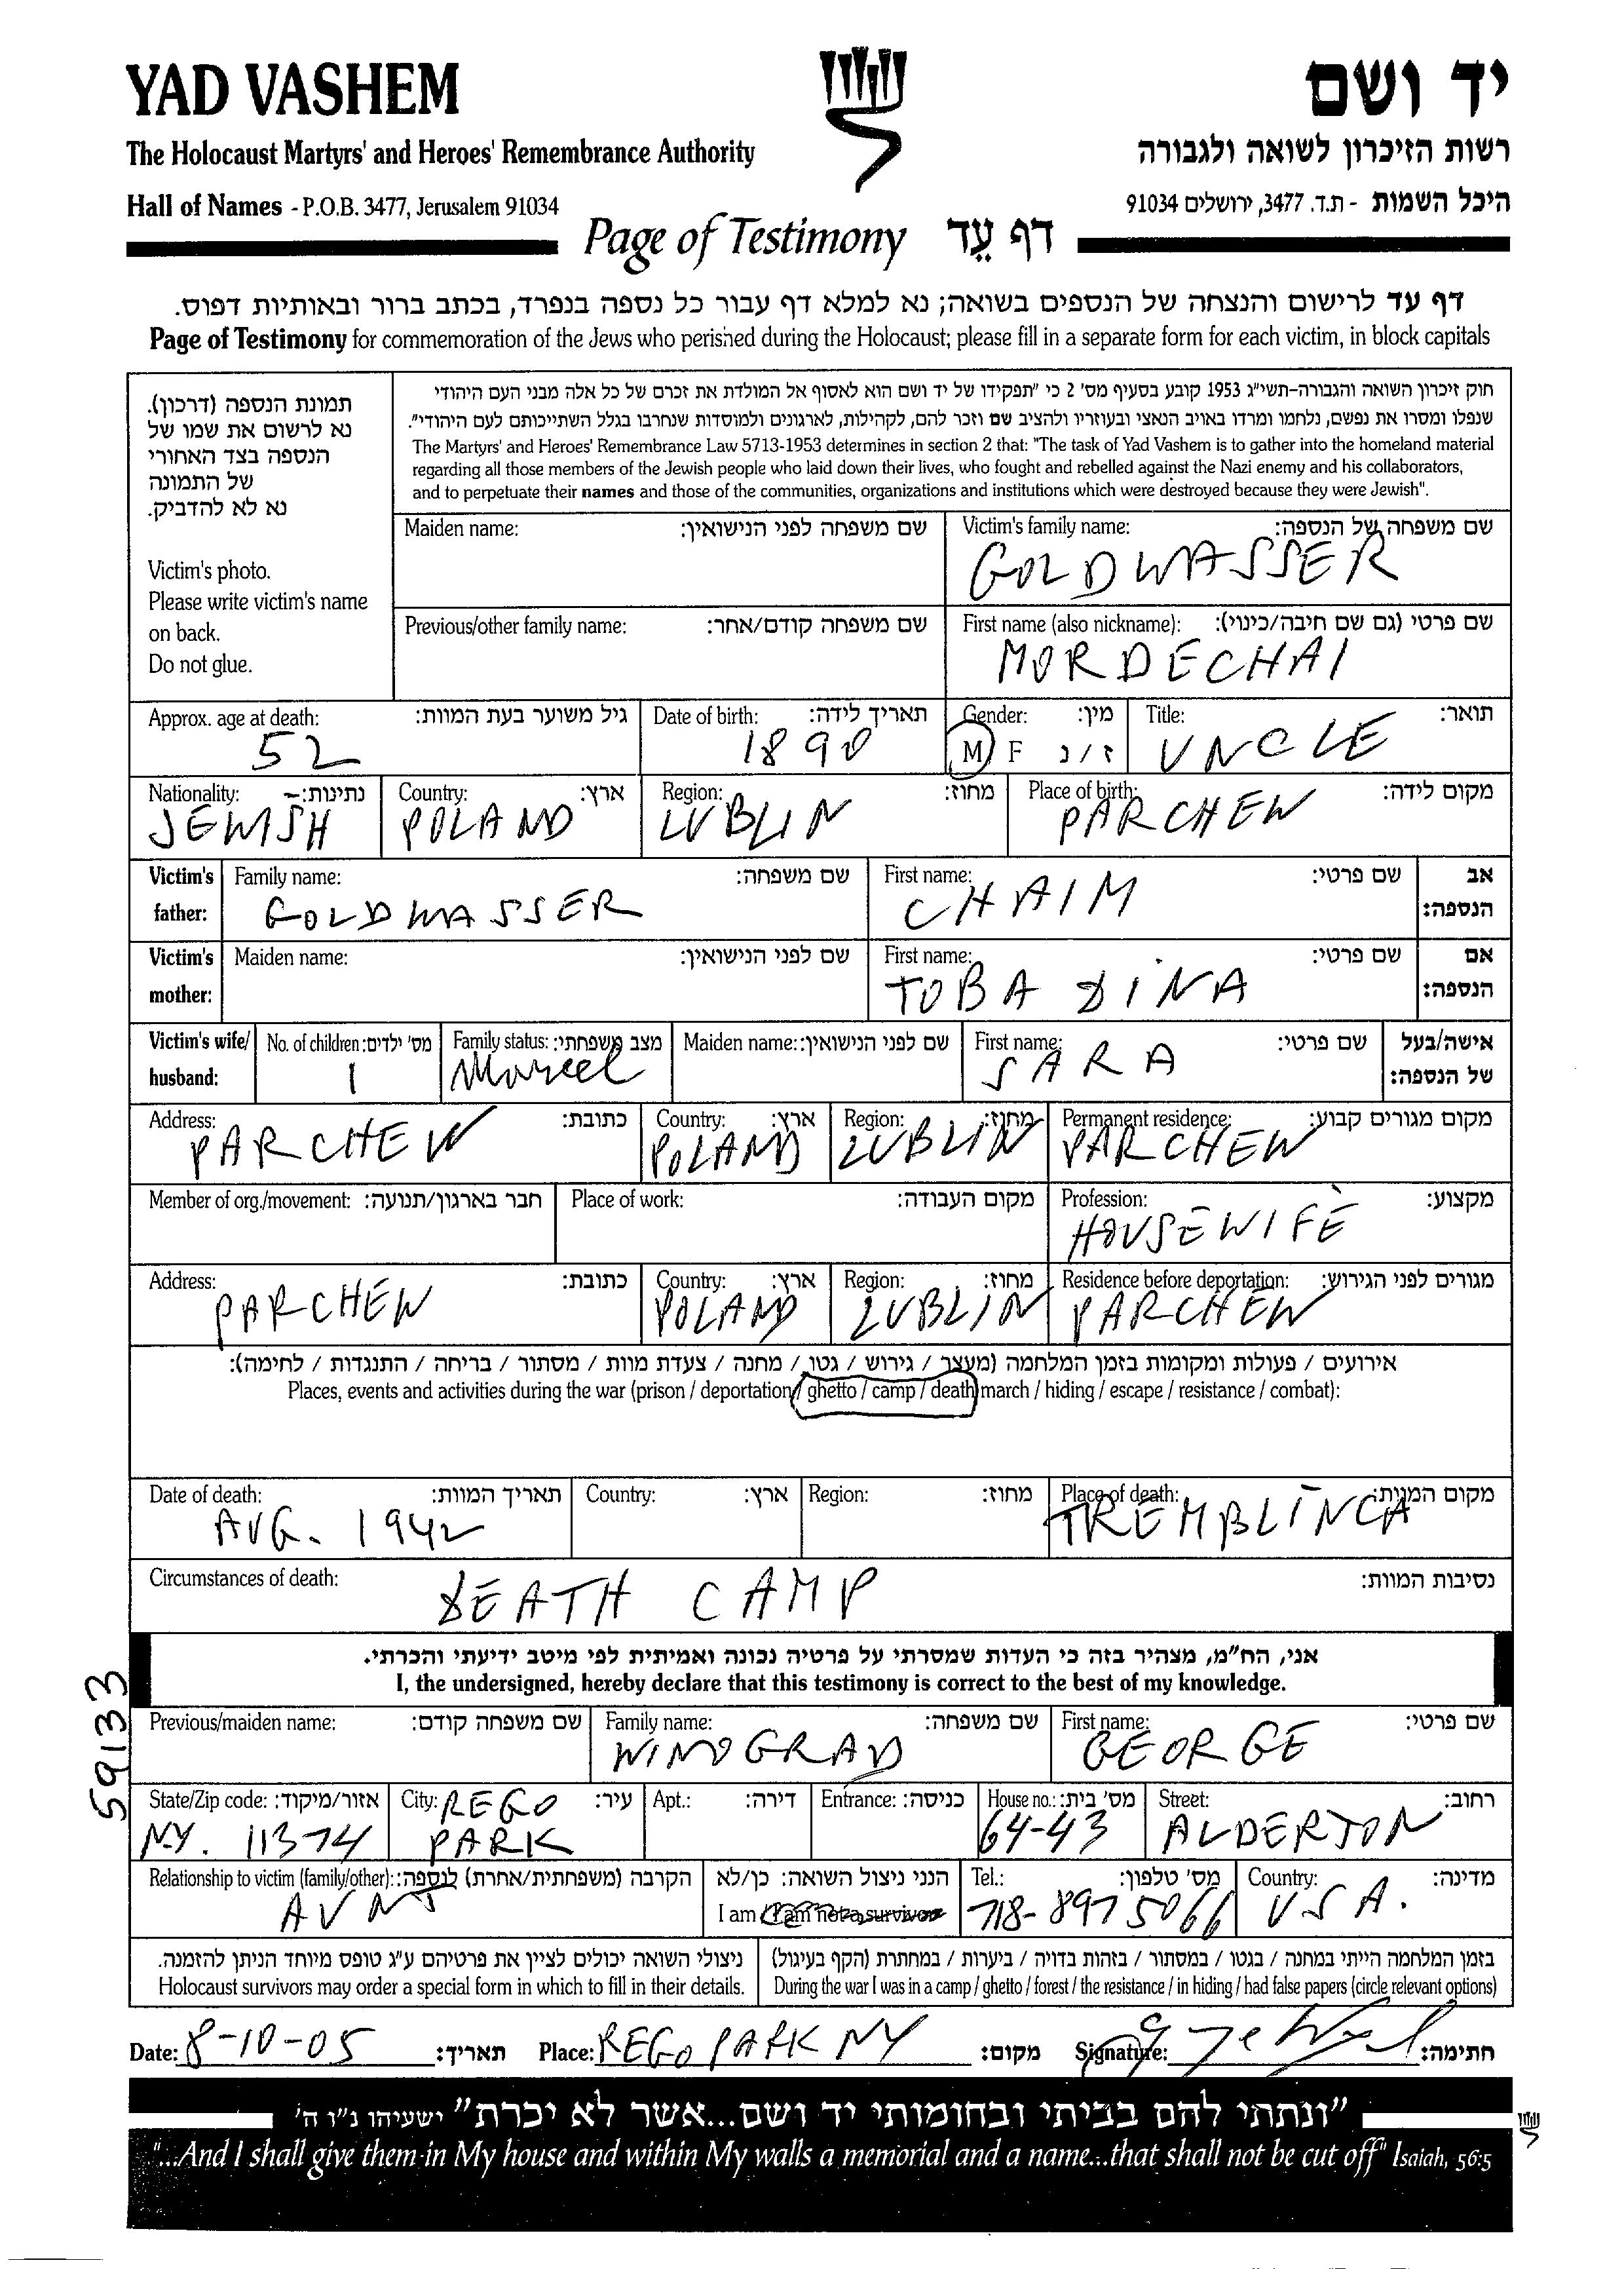 YAD VASHEM
יד ושם
The Holocaust Martyrs' and Heroes' Remembrance Authority
רשות הזיכרון לשואה ולגבורה
Hall of Names - P.O.B. 3477, Jerusalem 91034
היכל השמות - ת.ד. 3477, ירושלים 91034
Page of Testimony דף עֵד
דף עד לרישום והנצחה של הנספים בשואה; נא למלא דף עבור כל נספה בנפרד, בכתב ברור ובאותיות דפוס.
Page of Testimony for commemoration of the Jews who perished during the Holocaust; please fill in a separate form for each victim, in block capitals
תמונת הנספה (דרכון).
נא לרשום את שמו של
הנספה בצד האחורי
של התמונה
נא לא להדביק.
Victim's photo.
Please write victim's name
on back.
Do not glue.
חוק זיכרון השואה והגבורה-תשי"ג 1953 קובע בסעיף מס' 2 כי "תפקידו של יד ושם הוא לאסוף אל המולדת את זכרם של כל אלה מבני העם היהודי
שנפלו ומסרו את נפשם, נלחמו ומרדו באויב הנאצי ובעוזריו ולהציב שם וזכר להם, לקהילות, לארגונים ולמוסדות שנחרבו בגלל השתייכותם לעם היהודי".
The Martyrs' and Heroes' Remembrance Law 5713-1953 determines in section 2 that: "The task of Yad Vashem is to gather into the homeland material
regarding all those members of the Jewish people who laid down their lives, who fought and rebelled against the Nazi enemy and his collaborators,
and to perpetuate their names and those of the communities, organizations and institutions which were destroyed because they were Jewish".
Maiden name: שם משפחה לפני הנישואין:
Victim's family name: שם משפחה של הנספה:
GOLDWASSER
Previous/other family name: שם משפחה קודם/אחר:
First name (also nickname): שם פרטי (גם שם חיבה/כינוי):
MORDECHAI
Approx. age at death: גיל משוער בעת המוות: Date of birth: תאריך לידה: Gender: מין: Title: תואר:
52 1890 M F ז / נ UNCLE
Nationality: נתינות: Country: ארץ: Region: מחוז: Place of birth: מקום לידה:
JEWISH POLAND LUBLIN PARCHEW
Victim's father: Family name: שם משפחה: First name: שם פרטי: אב הנספה:
GOLDWASSER CHAIM
Victim's mother: Maiden name: שם לפני הנישואין: First name: שם פרטי: אם הנספה:
TOBA DINA
Victim's wife/ husband: No. of children: מס' ילדים: Family status: מצב משפחתי: Maiden name: שם לפני הנישואין: First name: שם פרטי: אישה/בעל של הנספה:
1 SARA
Address: כתובת: Country: ארץ: Region: מחוז: Permanent residence: מקום מגורים קבוע:
PARCHEW POLAND LUBLIN PARCHEW
Member of org./movement: חבר בארגון/תנועה: Place of work: מקום העבודה: Profession: מקצוע:
HOUSEWIFE
Address: כתובת: Country: ארץ: Region: מחוז: Residence before deportation: מגורים לפני הגירוש:
PARCHEW POLAND LUBLIN PARCHEW
אירועים / פעולות ומקומות בזמן המלחמה (מעצר / גירוש / גטו / מחנה / צעדת מוות / מסתור / בריחה / התנגדות / לחימה):
Places, events and activities during the war (prison / deportation / ghetto / camp / death march / hiding / escape / resistance / combat):
Date of death: תאריך המוות: Country: ארץ: Region: מחוז: Place of death: מקום המוות:
AUG. 1942 TREMBLINCA
Circumstances of death: נסיבות המוות:
DEATH CAMP
אני, הח"מ, מצהיר בזה כי העדות שמסרתי על פרטיה נכונה ואמיתית לפי מיטב ידיעתי והכרתי.
I, the undersigned, hereby declare that this testimony is correct to the best of my knowledge.
59133
Previous/maiden name: שם משפחה קודם: Family name: שם משפחה: First name: שם פרטי:
WINOGRAD GEORGE
State/Zip code: אזור/מיקוד: City: עיר: Apt.: דירה: Entrance: כניסה: House no.: מס' בית: Street: רחוב:
NY. 11374 REGO PARK 64-43 ALDERTON
Relationship to victim (family/other): הקרבה (משפחתית/אחרת) לנספה: הנני ניצול השואה: כן/לא Tel.: מס' טלפון: Country: מדינה:
I am / I am not a survivor 718-897 5066 USA.
ניצולי השואה יכולים לציין את פרטיהם ע"ג טופס מיוחד הניתן להזמנה.
Holocaust survivors may order a special form in which to fill in their details.
בזמן המלחמה הייתי במחנה / בגטו / במסתור / בזהות בדויה / ביערות / במחתרת (הקף בעיגול)
During the war I was in a camp / ghetto / forest / the resistance / in hiding / had false papers (circle relevant options)
Date: 8-10-05 תאריך: Place: REGO PARK NY מקום: Signature: חתימה:
"ונתתי להם בביתי ובחומותי יד ושם...אשר לא יכרת" ישעיהו נ"ו ה'
"...And I shall give them in My house and within My walls a memorial and a name...that shall not be cut off" Isaiah, 56:5